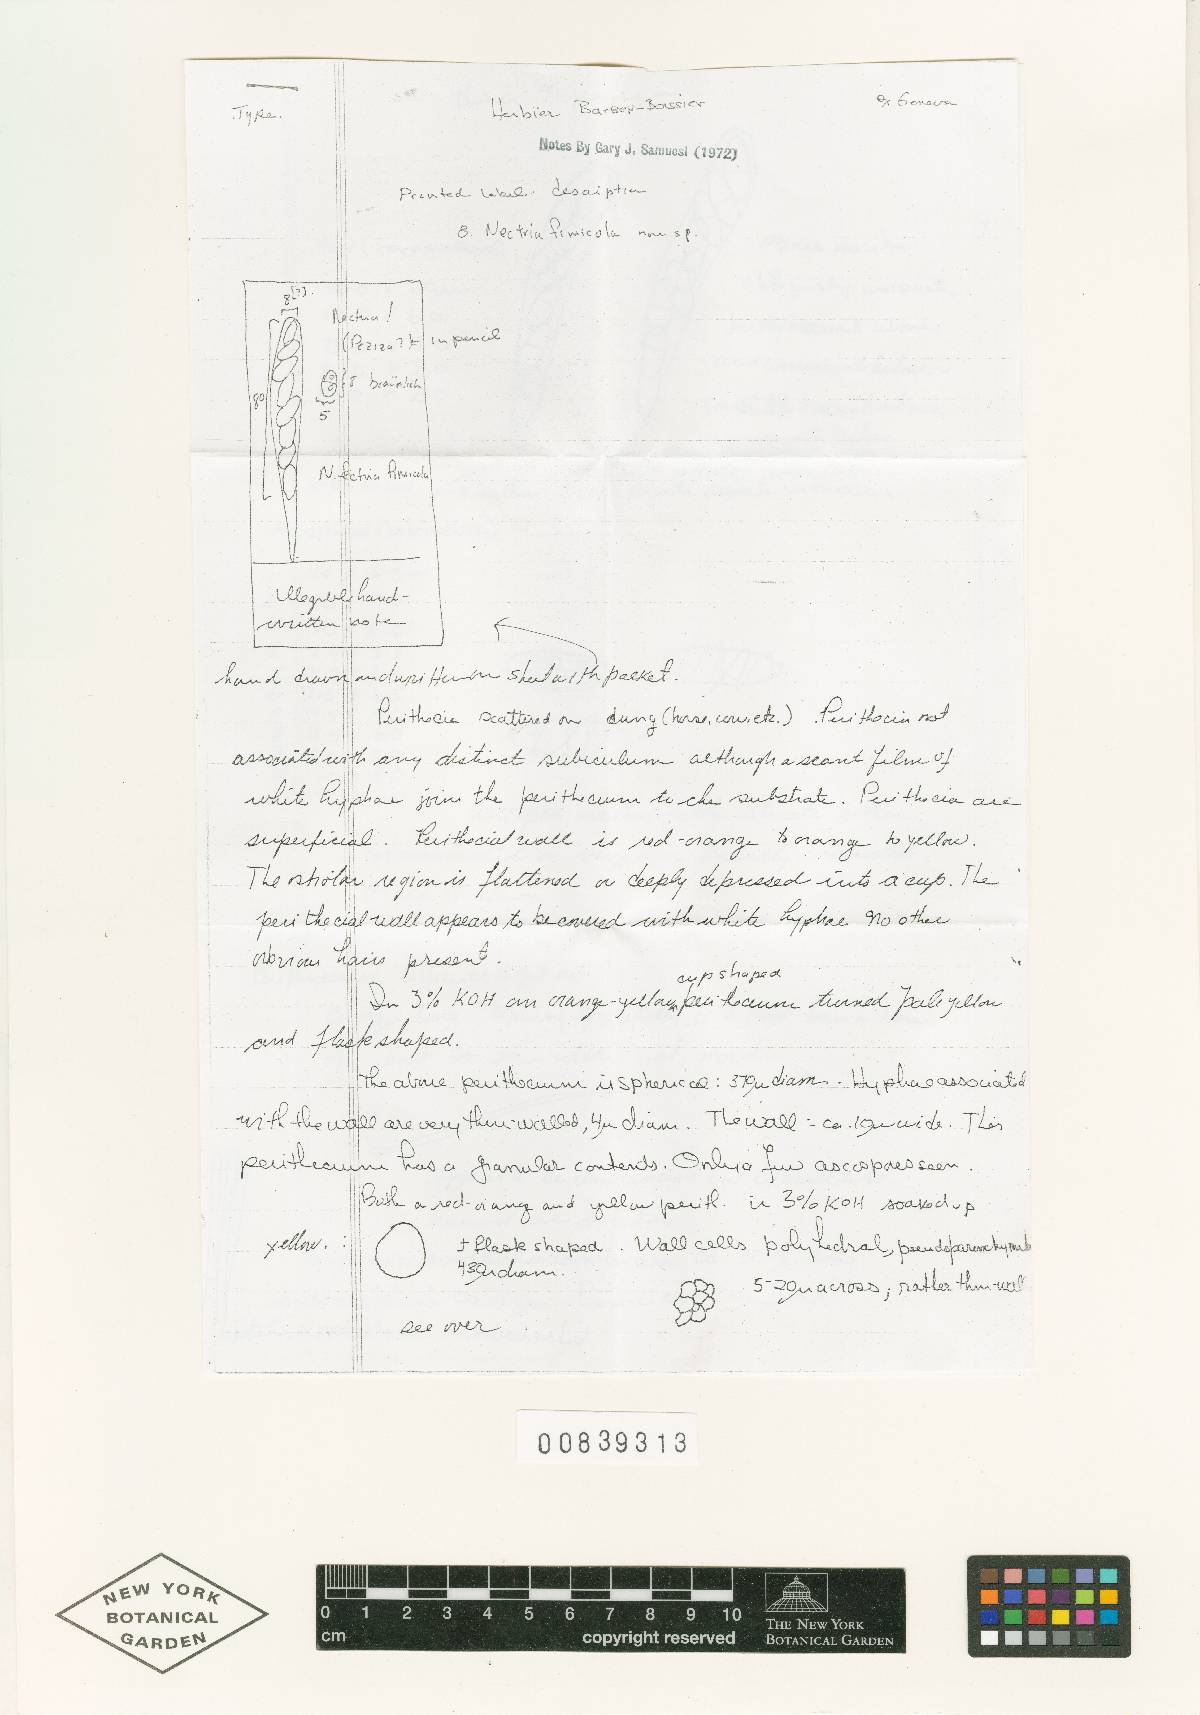 Type.
Herbier Barbey-Boissier
ex Geneva
Notes By Gary J. Samuesl (1972)
Printed label. description
8. Nectria fimicola nov sp.
8 (?)
Nectria!
(Peziza?) ± in pencil
80
5
bräunlich
Nectria fimicola
Illegible hand-
written note
hand drawn and written on sheet with packet.
Perithecia scattered on dung (horse, cow, etc.). Perithecia not
associated with any distinct subiculum although a scant film of
white hyphae joins the perithecium to the substrate. Perithecia are
superficial. Perithecial wall is red-orange to orange to yellow.
The ostiolar region is flattened or deeply depressed into a cup. The
perithecial wall appears to be covered with white hyphae no other
obvious hairs present.
cup shaped
In 3% KOH an orange-yellow perithecium turned pale yellow
and flask shaped.
The above perithecium is spherical: 370µ diam. Hyphae associated
with the wall are very thin-walled, 4µ diam. The wall = ca. 10µ wide. This
perithecium has a granular contents. Only a few ascospores seen.
Both a red-orange and yellow perith. in 3% KOH soaked up
yellow. :
± flask shaped. Wall cells polyhedral, pseudoparenchymat
430µ diam.
5-20µ across; rather thin-wall
see over
00839313
NEW YORK
BOTANICAL
GARDEN
0 1 2 3 4 5 6 7 8 9 10
cm
copyright reserved
THE NEW YORK
BOTANICAL GARDEN